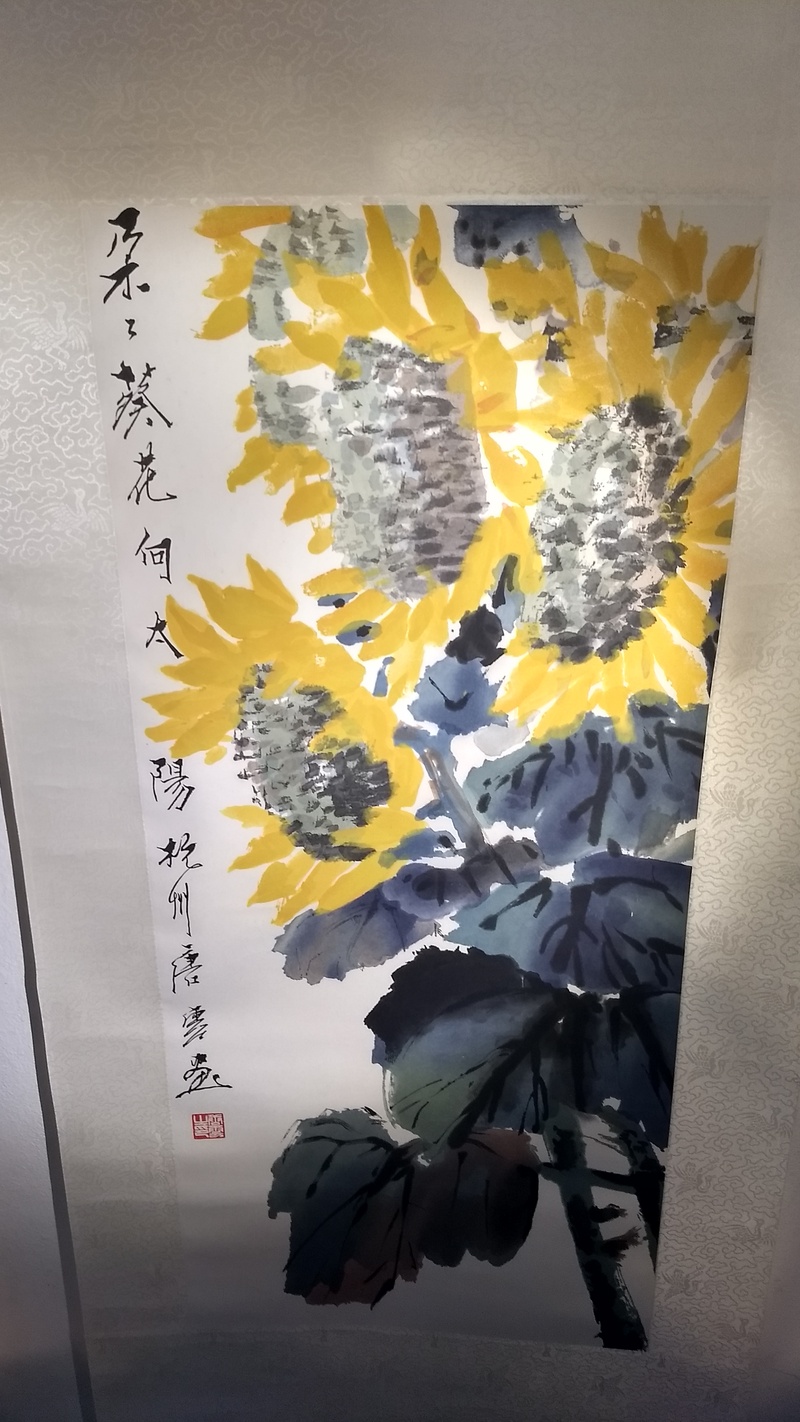 朵〻葵花向太陽杭州唐雲畫